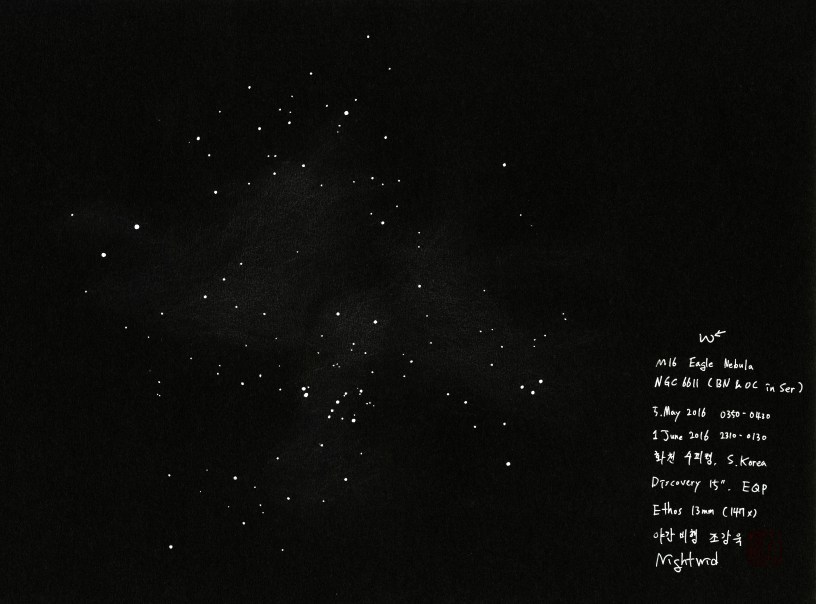 W
M16 Eagle Nebula
NGC 6611 (BN & OC in Ser)
5. May 2016 0350-0430
1 June 2016 2310-0130
화천 수피령, S.Korea
Discovery 15". EQP
Ethos 13mm (147x)
야간비행 조강욱
Nightwid